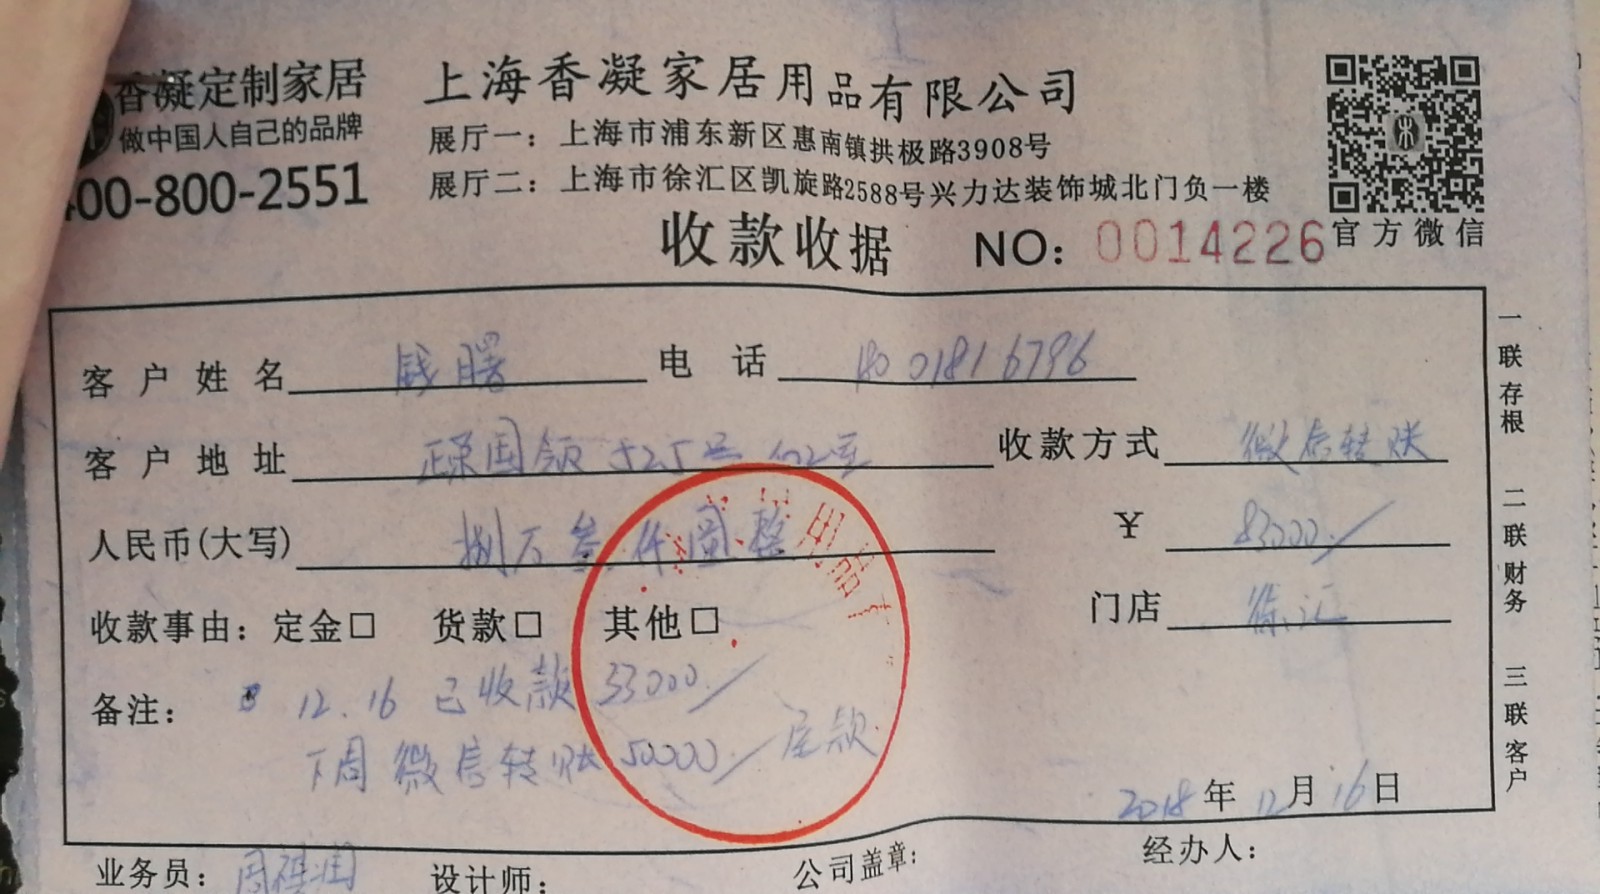 香凝定制家居
做中国人自己的品牌
400-800-2551
上海香凝家居用品有限公司
展厅一：上海市浦东新区惠南镇拱极路3908号
展厅二：上海市徐汇区凯旋路2588号兴力达装饰城北门负一楼
官方微信
收款收据 NO：0014226
客户姓名 钱曙 电话 18001816796
客户地址 525号 收款方式 微信转账
人民币(大写) 捌万叁仟圆整 ￥ 83000/
收款事由：定金□ 货款□ 其他□ 门店 徐汇
备注： 12.16 已收款 33000/
下周 微信转账 50000/ 尾款
2018年12月16日
业务员： 设计师： 公司盖章： 经办人：
一联存根
二联财务
三联客户
用品